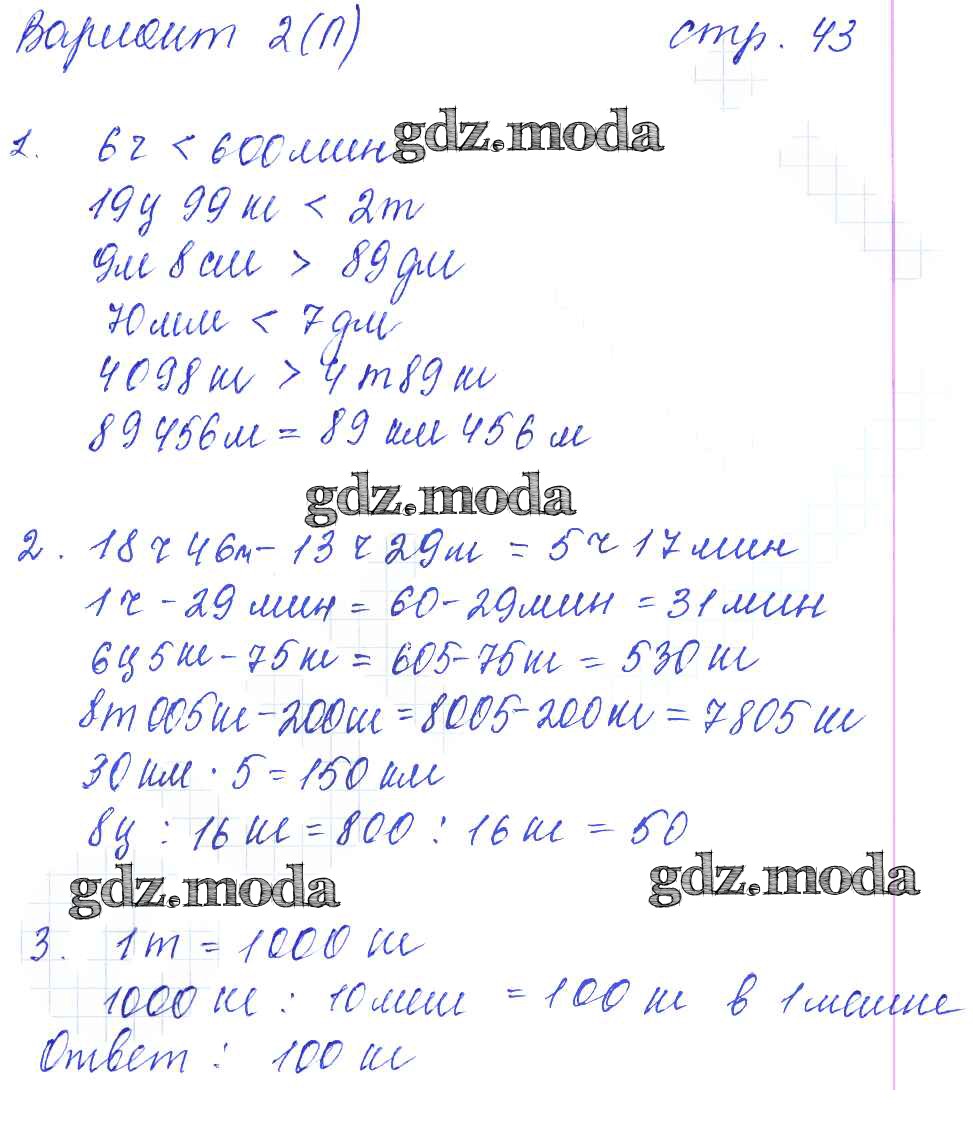 Вариант 2(П) стр. 43
1. 6ч < 600мин
gdz.moda
19ц 99кг < 2т
9м 8см > 89дм
70мм < 7дм
4098кг > 4т89кг
89456м = 89км 456м
gdz.moda
2. 18ч46м - 13ч29м = 5ч17мин
1ч - 29мин = 60 - 29мин = 31мин
6ц5кг - 75кг = 605 - 75кг = 530кг
8т005кг - 200кг = 8005 - 200кг = 7805кг
30км · 5 = 150км
8ц : 16кг = 800 : 16кг = 50
gdz.moda gdz.moda
3. 1т = 1000кг
1000кг : 10меш = 100кг в 1мешке
Ответ: 100кг